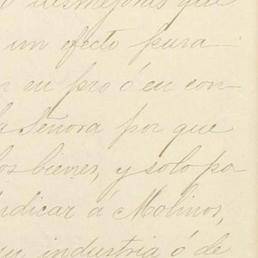 desmejoras que
un efecto para
en pro ó en con-
la Señora por que
los bienes, y solo pa
indicar á Molinos,
su industria ó de